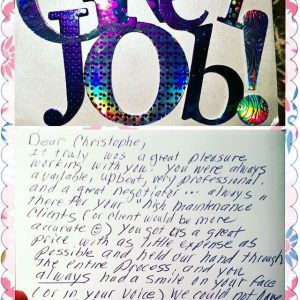 GREAT
JOB!
Dear Christophe,
It truly was a great pleasure
working with you. You were always
available, upbeat, very professional,
and a great negotiator... always
there for your "high maintenance
clients (or client would be more
accurate ☺) You got us a great
price with as little expense as
possible and held our hand through
the entire process, and you
always had a smile on your face
(or in your voice) We could not have